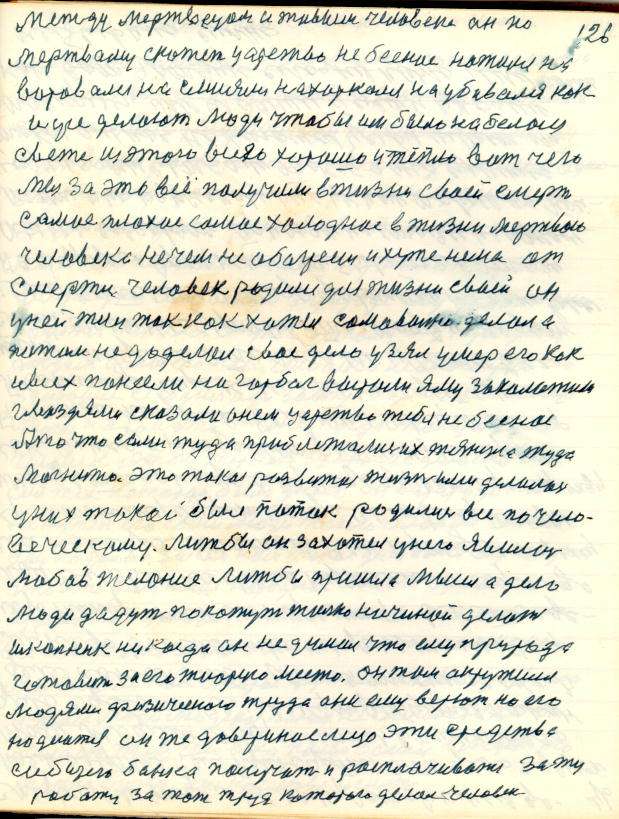 Между мертвецом и живым человека он по
126
мертвому скажет царство небесное нажили на
воровали на смияли нахаркали на убивали как
и уре делают люди чтобы им было на белом
свете из этого всего хорошо и тёпло вот чего
мы за это всё получили в жизни своей смерт
самое плохое самое холодное в жизни мертвого
человека нечем не обогрееш и хуже нема от
смерти. человек родили для жизни своей он
у ней жил так как хотел самоважно делал а
потом не доделал свое дело узял умер его как
и всех понесли на гарбах вырыли яму заколотили
гвоздями сказали о нем царство тебе небесное
А то что сами туда приближалис их тянула туда
могыла. это такое развитие жизни они делалас
у них такой был паток родилис все по чело-
веческому. лижбы он захотел у него явилос
любов желание лижбы пришла мысл а дело
люди дадут покажут только начинай делат
школьник никогда он не думал что ему природа
готовит за его место. он там окружил
людями физического труда они ему верют на его
надиются он же довериное лицо эти средства
с банка получит и росплачивает за ту
работу за тот труд которого делал человек